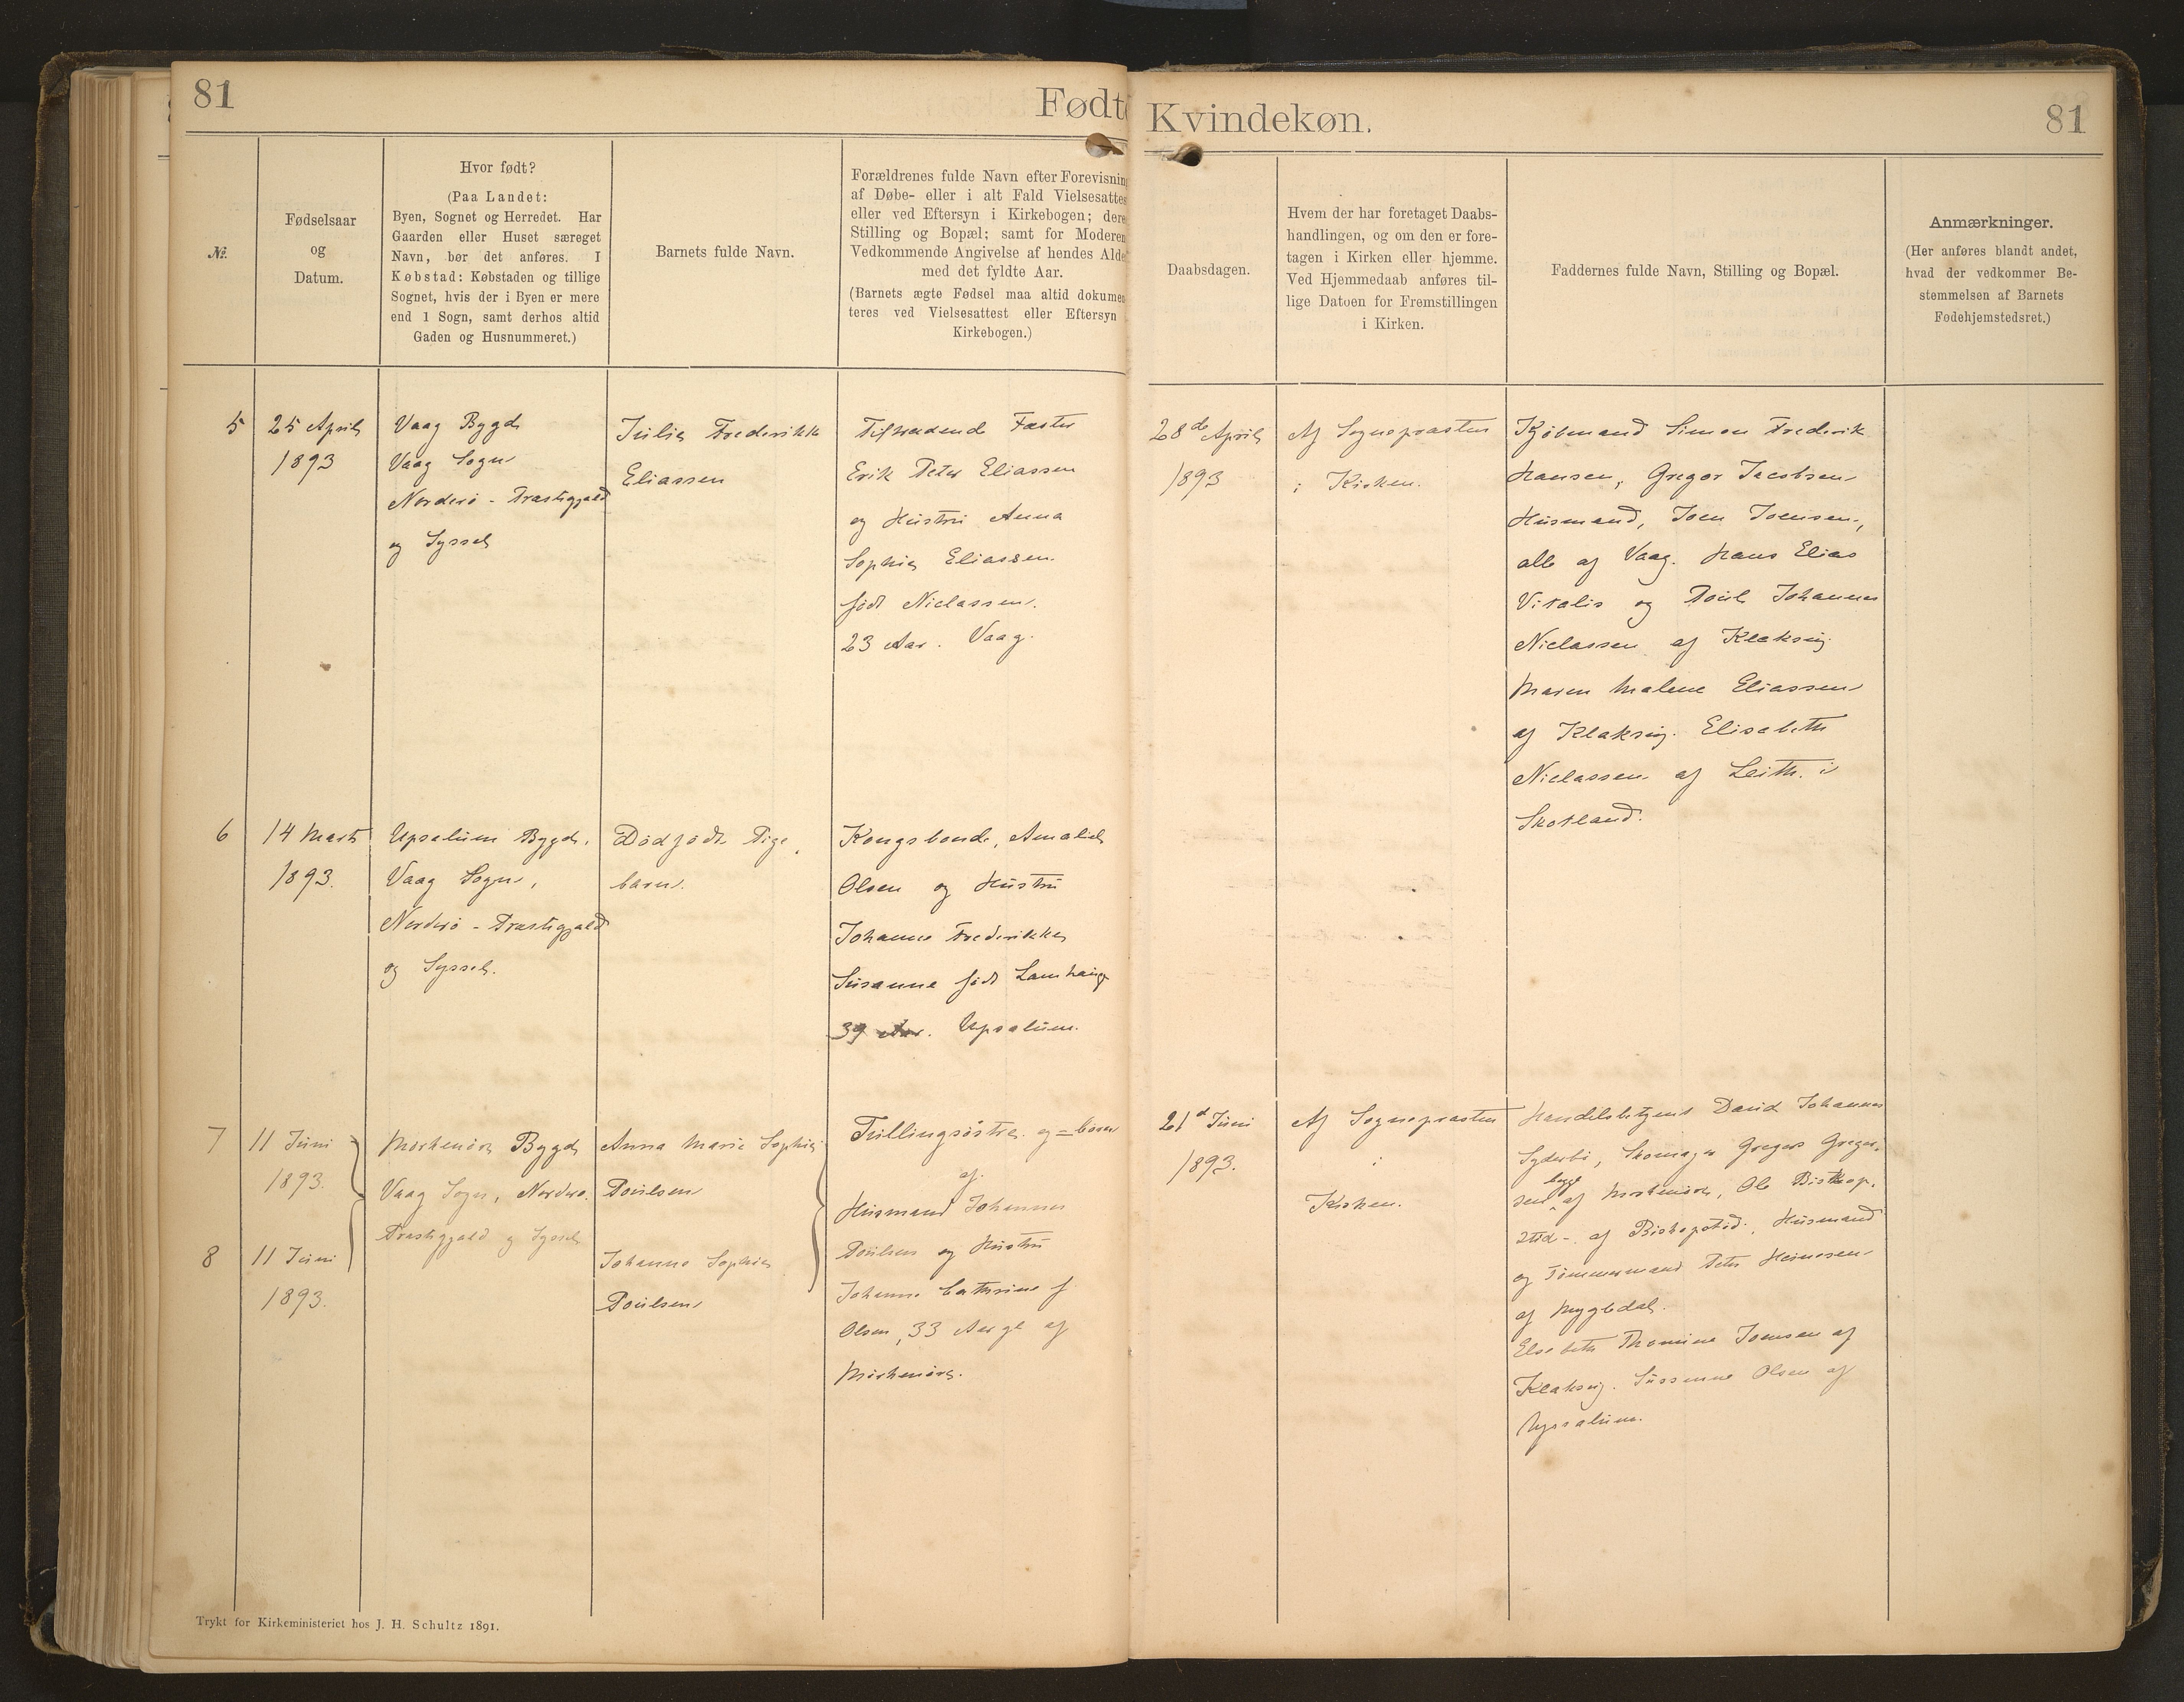 81
Fødte
Kvindekøn.
81
№.
Fødselsaar
og
Datum.
Hvor født?
(Paa Landet:
Byen, Sognet og Herredet. Har
Gaarden eller Huset særeget
Navn, bør det anføres. I
Købstad: Købstaden og tillige
Sognet, hvis der i Byen er mere
end 1 Sogn, samt derhos altid
Gaden og Husnummeret.)
Barnets fulde Navn.
Forældrenes fulde Navn efter Forevisning
af Døbe- eller i alt Fald Vielsesattest
eller ved Eftersyn i Kirkebogen; deres
Stilling og Bopæl; samt for Moderens
Vedkommende Angivelse af hendes Alder
med det fyldte Aar.
(Barnets ægte Fødsel maa altid dokumen
teres ved Vielsesattest eller Eftersyn
Kirkebogen.)
Daabsdagen.
Hvem der har foretaget Daabs-
handlingen, og om den er fore-
tagen i Kirken eller hjemme.
Ved Hjemmedaab anføres til-
lige Datoen for Fremstillingen
i Kirken.
Faddernes fulde Navn, Stilling og Bopæl.
Anmærkninger.
(Her anføres blandt andet,
hvad der vedkommer Be-
stemmelsen af Barnets
Fødehjemstedsret.)
5
25 April
1893
Vaag Bygd
Vaag Sogn
Norderø - Præstegjæld
og Syssel
Julia Frederikke
Eliassen
Tiltrædende Fæster
Erik Peter Eliassen
og Hustru Anna
Sophia Eliassen
født Niclassen.
23 Aar. Vaag.
28de April
1893
Af Sognepræsten
i Kirken.
Kjöbmand Simon Frederik
Hansen, Gregor Jacobsen
Husmand, Joen Joensen,
alle af Vaag. Hans Elias
Vitalis og Poul Johannes
Niclassen af Klaksvig
Maren Malene Eliassen
af Klaksvig. Elisabeth
Niclassen af Leith i
Skotland.
6
14 Marts
1893.
Upsalum Bygd,
Vaag Sogn,
Norderø - Præstegjæld
og Syssel.
Dødfødt Pige,
barn.
Kongsbonde, Amaliel
Olsen og Hustru
Johanne Frederikke
Susanne født Lamhauge
39 Aar. Upsalum.
7
11 Juni
1893.
Mørkenöre Bygd
Vaag Sogn, Norderø.
Præstegjæld og Syssel
Anna Marie Sophie
Poulsen
Tvillingsøstre. og = børn
af
Husmand Johannes
Poulsen og Hustru
Johanne Cathrine f.
Olsen, 33 Aar gl af
Mørkenöre.
8
11 Juni
1893.
Johanne Sophie
Poulsen
21d Juni
1893.
Af Sognepræsten
i
Kirken.
Handelsbetjent David Johannes
Syderbö, Skomager Gregers Greger,
sen begge af Mørkenöre, Ole Biskop,
stød -. af Biskopstød, Husmand
og Tømmermand Peter Heinesen
af Myggedal.
Elsebeth Thomine Joensen af
Klaksvig. Sussanne Olsen af
Upsalum.
Trykt for Kirkeministeriet hos J. H. Schultz 1891.